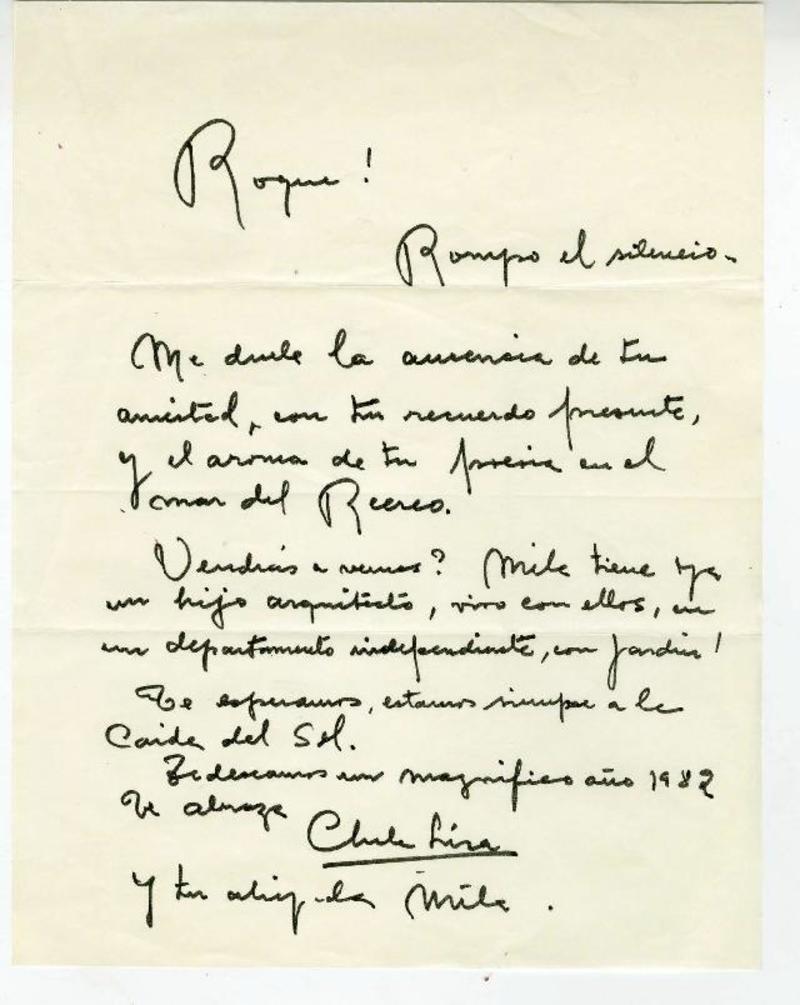 Roque!
Rompo el silencio-
Me duele la ausencia de tu
amistad, con tu recuerdo presente,
y el aroma de tu poesia en el
mar del Recreo.
Vendrás a vernos? Mila tiene ya
un hijo arquitecto, vivo con ellos, en
un departamento independiente, con jardin!
Te esperamos, estamos siempre a la
Caida del Sol.
Te deseamos un magnifico año 1982
Te abraza
Lira
Y tu Mila.